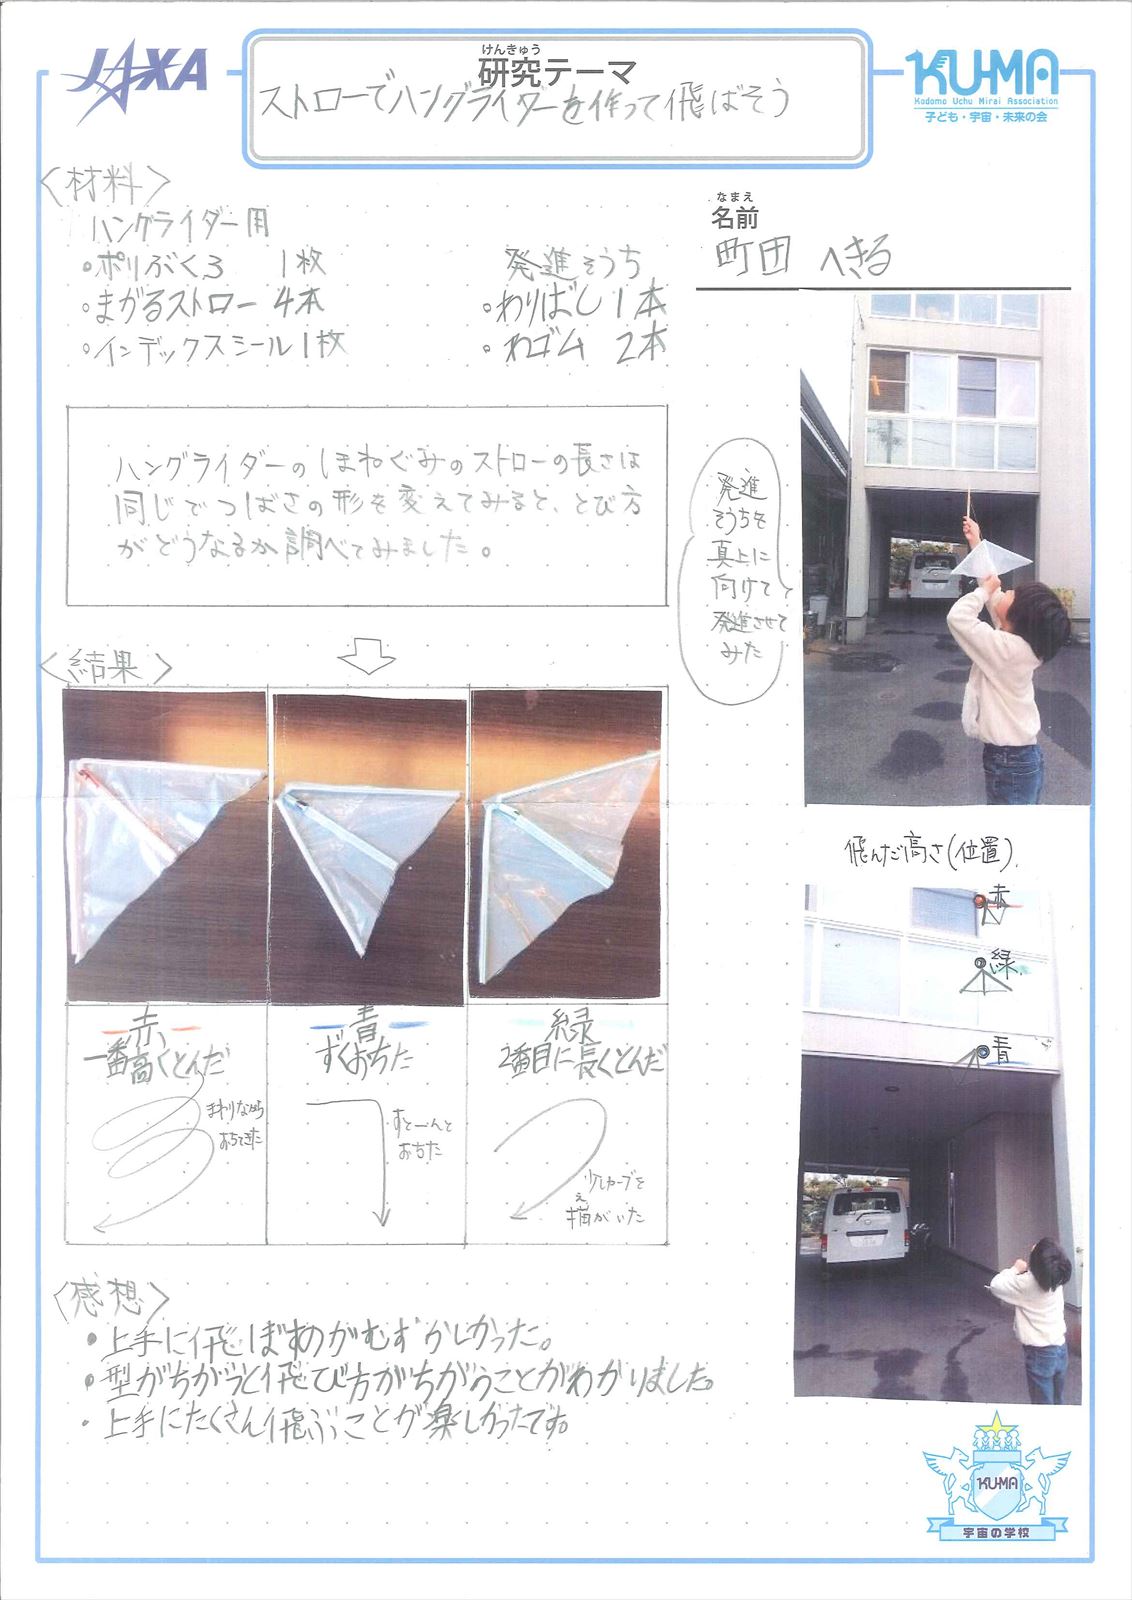 JAXA
けんきゅう
研究テーマ
ストローでハングライダーを作って飛ばそう
KU-MA
Kodomo Uchu Mirai Association
子ども・宇宙・未来の会
なまえ
名前
町田 へきる
〈材料〉
ハングライダー用
・ポリぶくろ 1枚
・まがるストロー 4本
・インデックスシール1枚
発進そうち
・わりばし1本
・わゴム 2本
ハングライダーのほねぐみのストローの長さは
同じでつばさの形を変えてみると、とび方
がどうなるか調べてみました。
発進
そうちを
真上に
向けて
発進させて
みた
〈結果〉
赤
一番高くとんだ
まわりながら
おちてきた
青
ずくおちた
すとーんと
おちた
緑
2番目に長くとんだ
少しカーブを
え
描がいた
飛んだ高さ(位置)
赤
緑
青
〈感想〉
・上手に飛ばすのがむずかしかった。
・型がちがうと飛び方がちがうことがわかりました。
・上手にたくさん飛ぶことが楽しかったです。
KU-MA
宇宙の学校